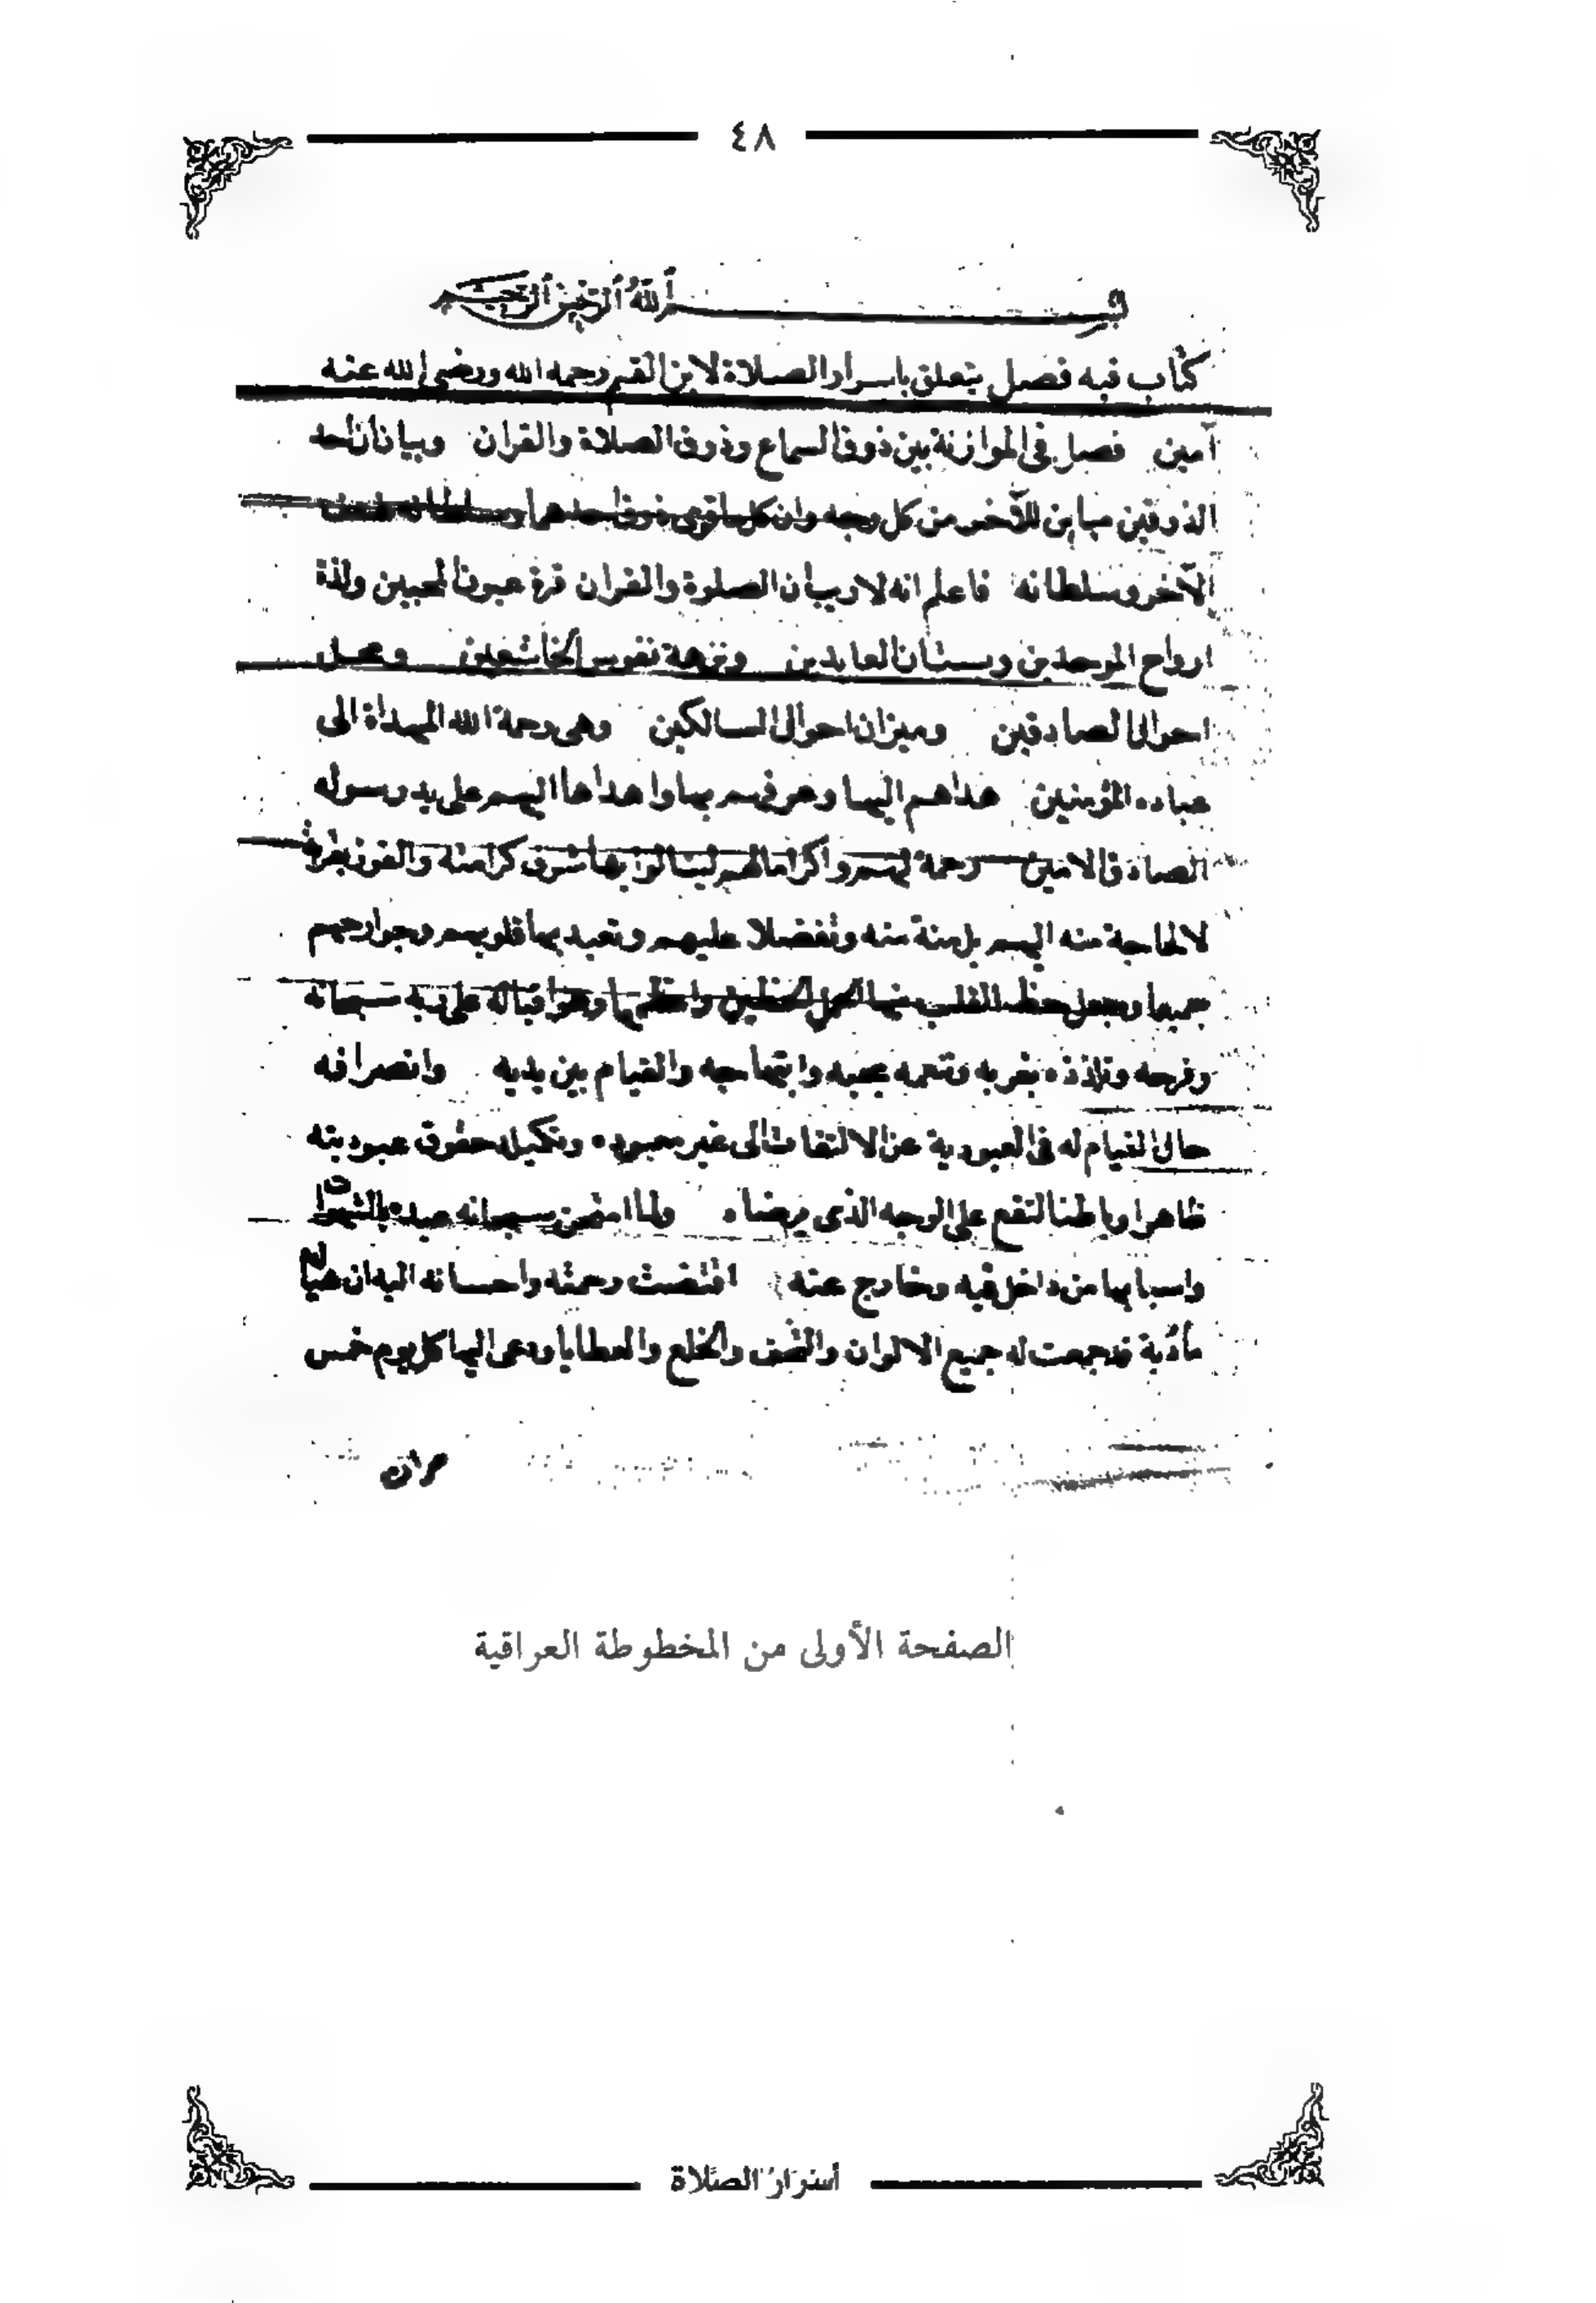 ٤٨
بسم الله الرحمن الرحيم
كتاب فيه فصل يتعلق باسرار الصلاة لابن القيم رحمه الله ورضى الله عنه
آمين فصل فى الموازنة بين ذوق السماع وذوق الصلاة والقران وبيان أن أحد
الذوقين مباين للآخر من كل وجه وان كل ما قوى ذوق احدهما وسلطانه ضعف
الآخر وسلطانه فاعلم انه لاريب أن الصلوة والقران قرة عيون المحبين ولذة
ارواح الموحدين وبستان العابدين ونزهة نفوس الخاشعين ومحل
احوال الصادقين وميزان احوال السالكين وهى رحمة الله المهداة الى
عباده المؤمنين هداهم اليها وعرفهم بها واهداها اليهم على يد رسوله
الصادق الامين رحمة لهم واكراما لهم لينالوا بها شرف كرامته والفوز بقربه
لا لحاجة منه اليهم بل منة منه وتفضلا عليهم وتعبد بها قلوبهم وجوارحهم
جميعا وجعل حظ القلب منها اكمل الحظين واعظمها وهو اقباله على ربه سبحانه
وفرحه وتلذذه بقربه وتنعمه بحبه وابتهاجه والقيام بين يديه وانصرافه
حال القيام له فى العبودية عن الالتفات الى غير معبوده وتكميل حقوق عبوديته
ظاهرا وباطنا لتقع على الوجه الذى يرضاه ولما امتحن سبحانه عبده بالشهوات
واسبابها من داخل فيه وخارج عنه اقتضت رحمته واحسانه اليه ان هيأ له
مأدبة قد جمعت له جميع الالوان والتحف والخلع والعطايا ودعى اليها كل يوم خمس
مرات
الصفحة الأولى من المخطوطة العراقية
أسرار الصلاة